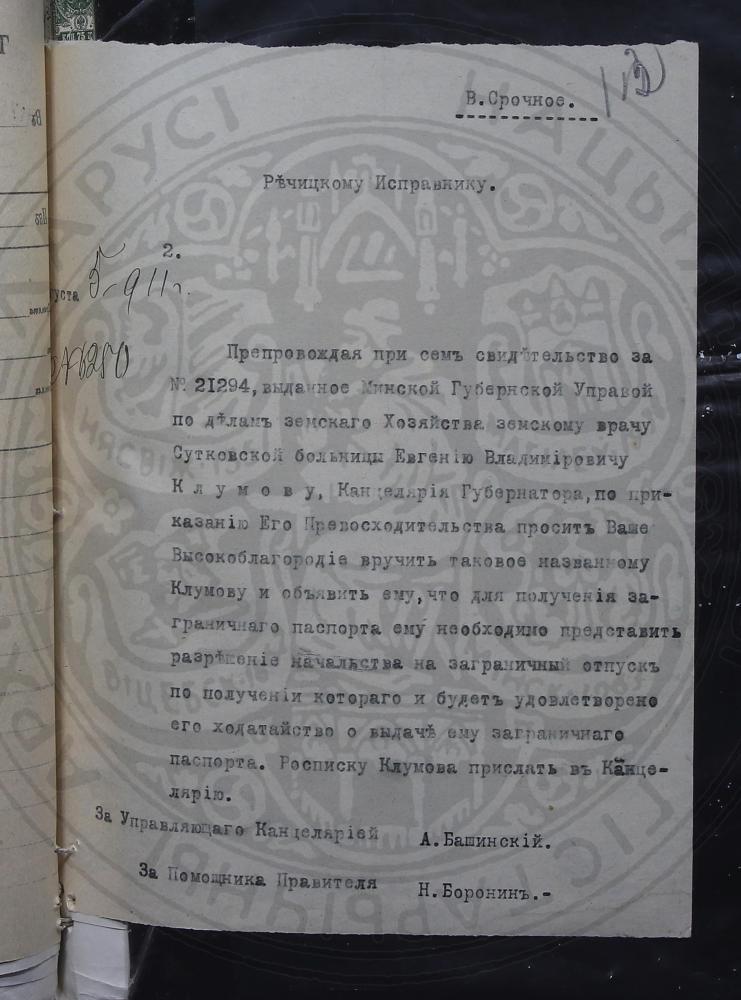 В.Срочное.
Рѣчицкому Исправнику.
2.
уста 5-911г.
6280
Препровождая при семъ свидѣтельство за
№ 21294, выданное Минской Губернской Управой
по дѣламъ земскаго Хозяйства земскому врачу
Сутковской больницы Евгенію Владиміровичу
К л у м о в у, Канцелярія Губернатора,по при-
казанію Его Превосходительства проситъ Ваше
Высокоблагородіе вручить таковое названному
Клумову и объявить ему,что для полученія за-
граничнаго паспорта ему необходимо представить
разрѣшеніе начальства на заграничный отпускъ
по полученіи котораго и будетъ удовлетворено
его ходатайство о выдачѣ ему заграничнаго
паспорта. Росписку Клумова прислать въ Канце-
лярію.
За Управляющаго Канцеляріей А.Башинскій.
За Помощника Правителя Н.Боронинъ.-